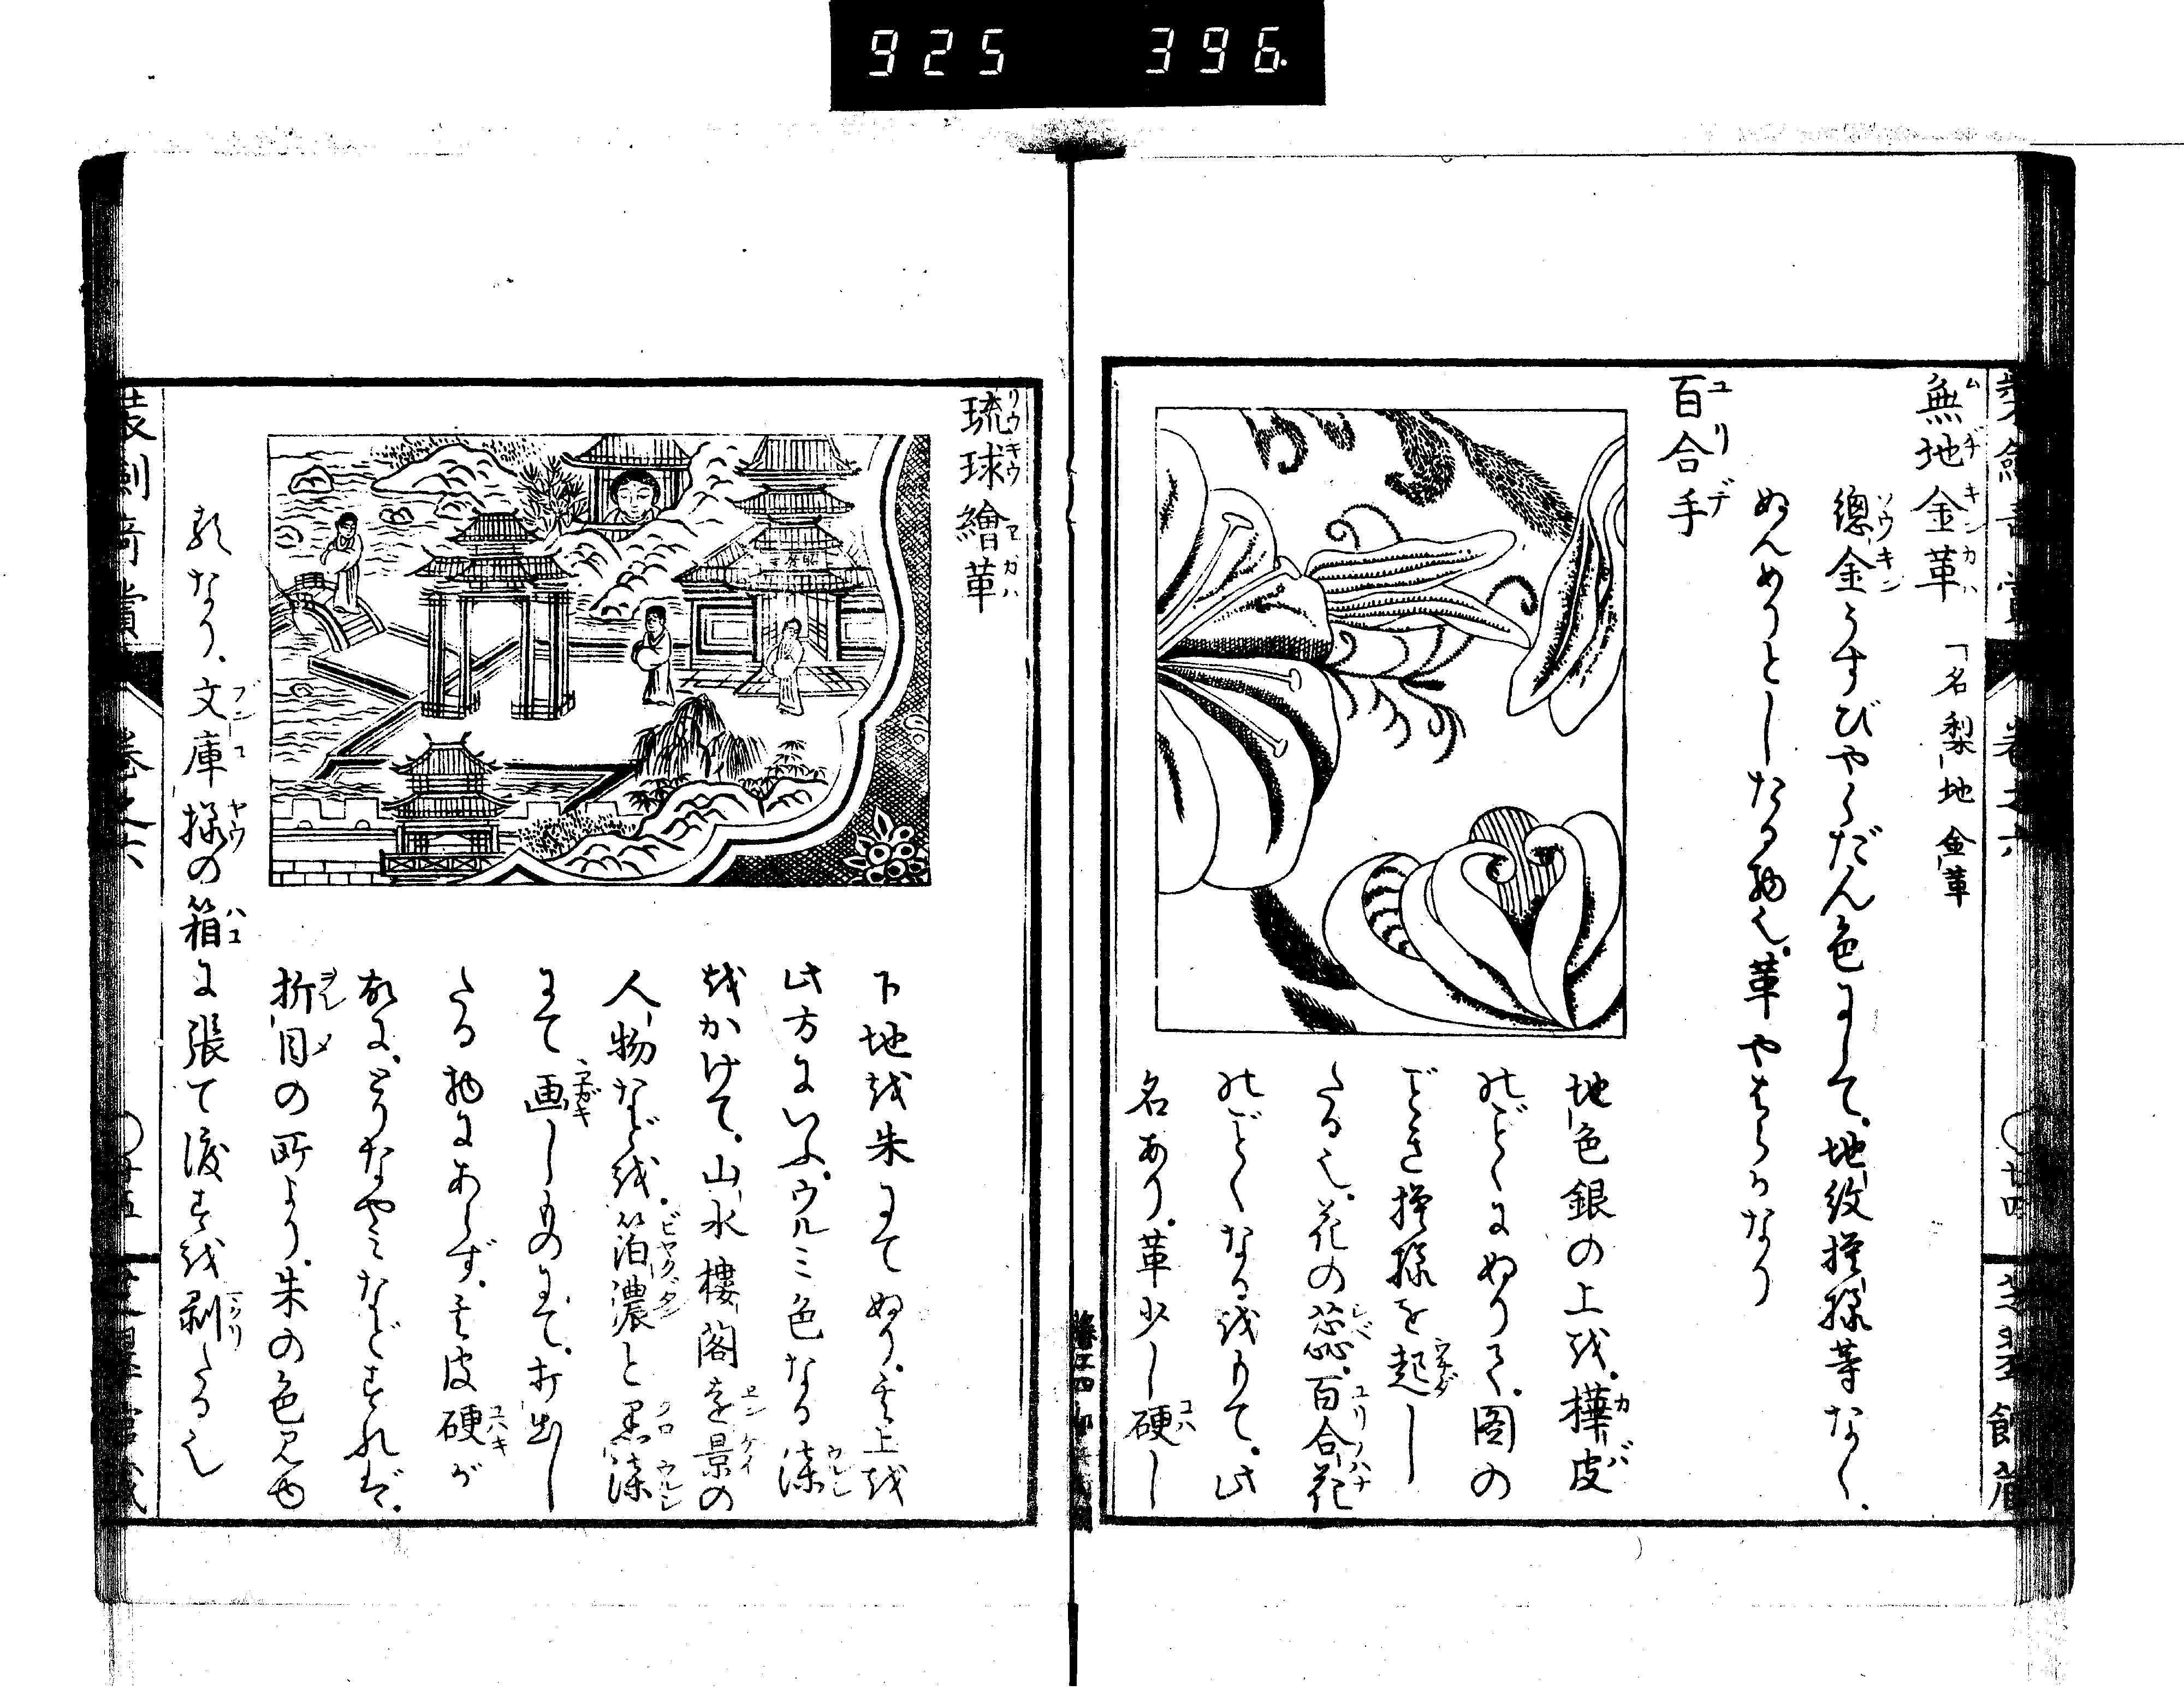 925 396
無地金革 一名梨地金革
總金うすびやくだん色にして、地紋摸様等なく、
ぬんめりとしたる物也。革やはらかなり
百合手
地色銀の上を、樺皮
のごとくにぬりて、圖の
ごとき摸様を起し
たる也。花の蕊、百合花
のごとくなるをもて、此
名あり。革少し硬し
琉球繪革
下地を朱にてぬり、其上を
此方にいふ、ウルミ色なる漆
をかけて、山水樓閣を景の
人物などを、箔濃と黒漆
にて画しものにて、打出し
たる物にあらず。其皮硬が
故に、とりなやみなどすれば、
折目の所より、朱の色見ゆ
るなり、文庫様の箱に張て渡すを剥たる也
装劍奇賞 卷之六